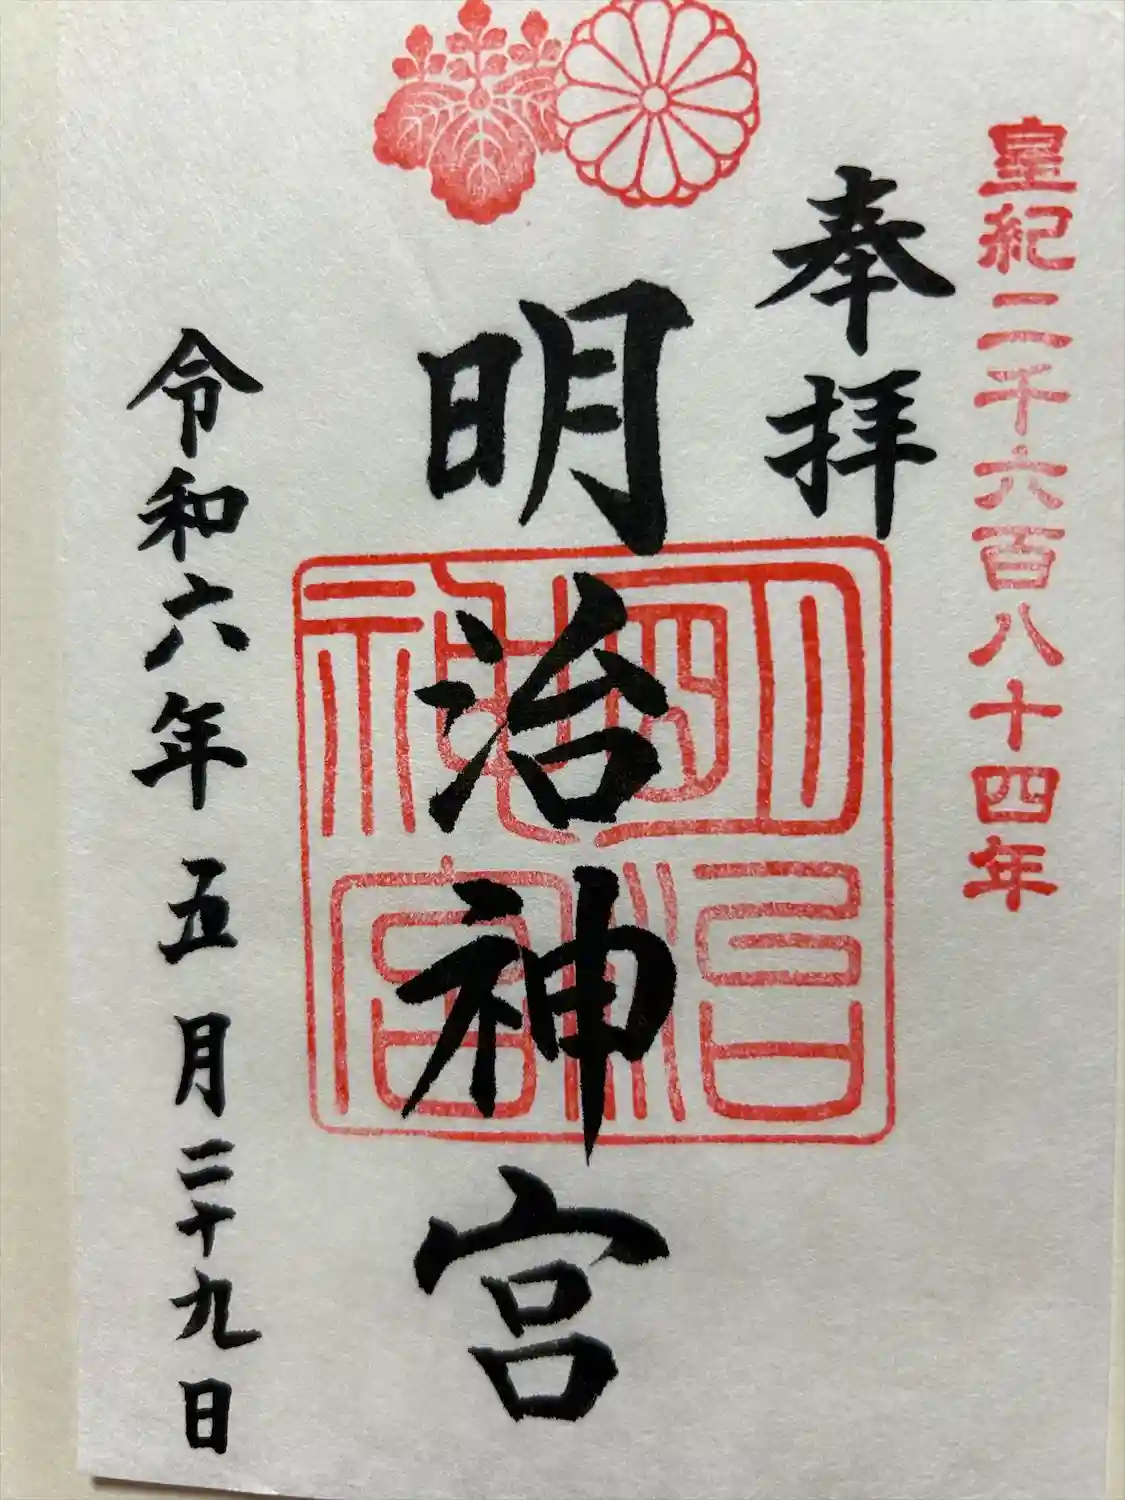 皇紀二千六百八十四年
奉拝
明治神宮
明治神宮
令和六年五月二十九日